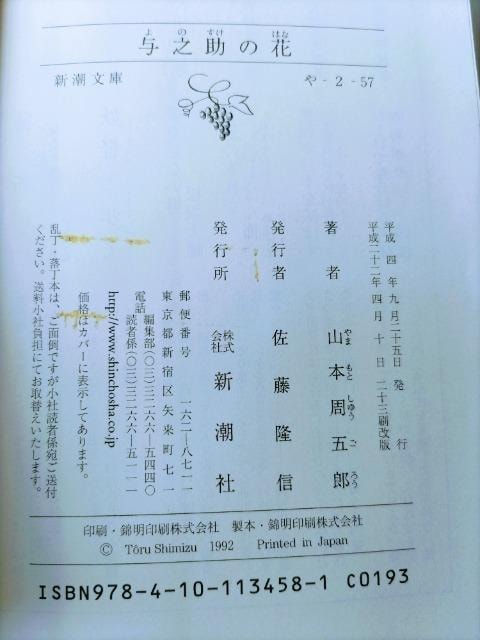 与之助の花
よのすけ はな
新潮文庫 や-2-57
平成四年九月二十五日発行
平成二十二年四月十日二十三刷改版
著者 山本周五郎
やまもとしゅうごろう
発行者 佐藤隆信
発行所 株式会社 新潮社
郵便番号 一六二—八七一一
東京都新宿区矢来町七一
電話 編集部(〇三)三二六六—五四四〇
読者係(〇三)三二六六—五一一一
http://www.shinchosha.co.jp
価格はカバーに表示してあります。
乱丁・落丁本は、ご面倒ですが小社読者係宛ご送付
ください。送料小社負担にてお取替えいたします。
印刷・錦明印刷株式会社 製本・錦明印刷株式会社
© Tôru Shimizu 1992 Printed in Japan
ISBN978-4-10-113458-1 C0193